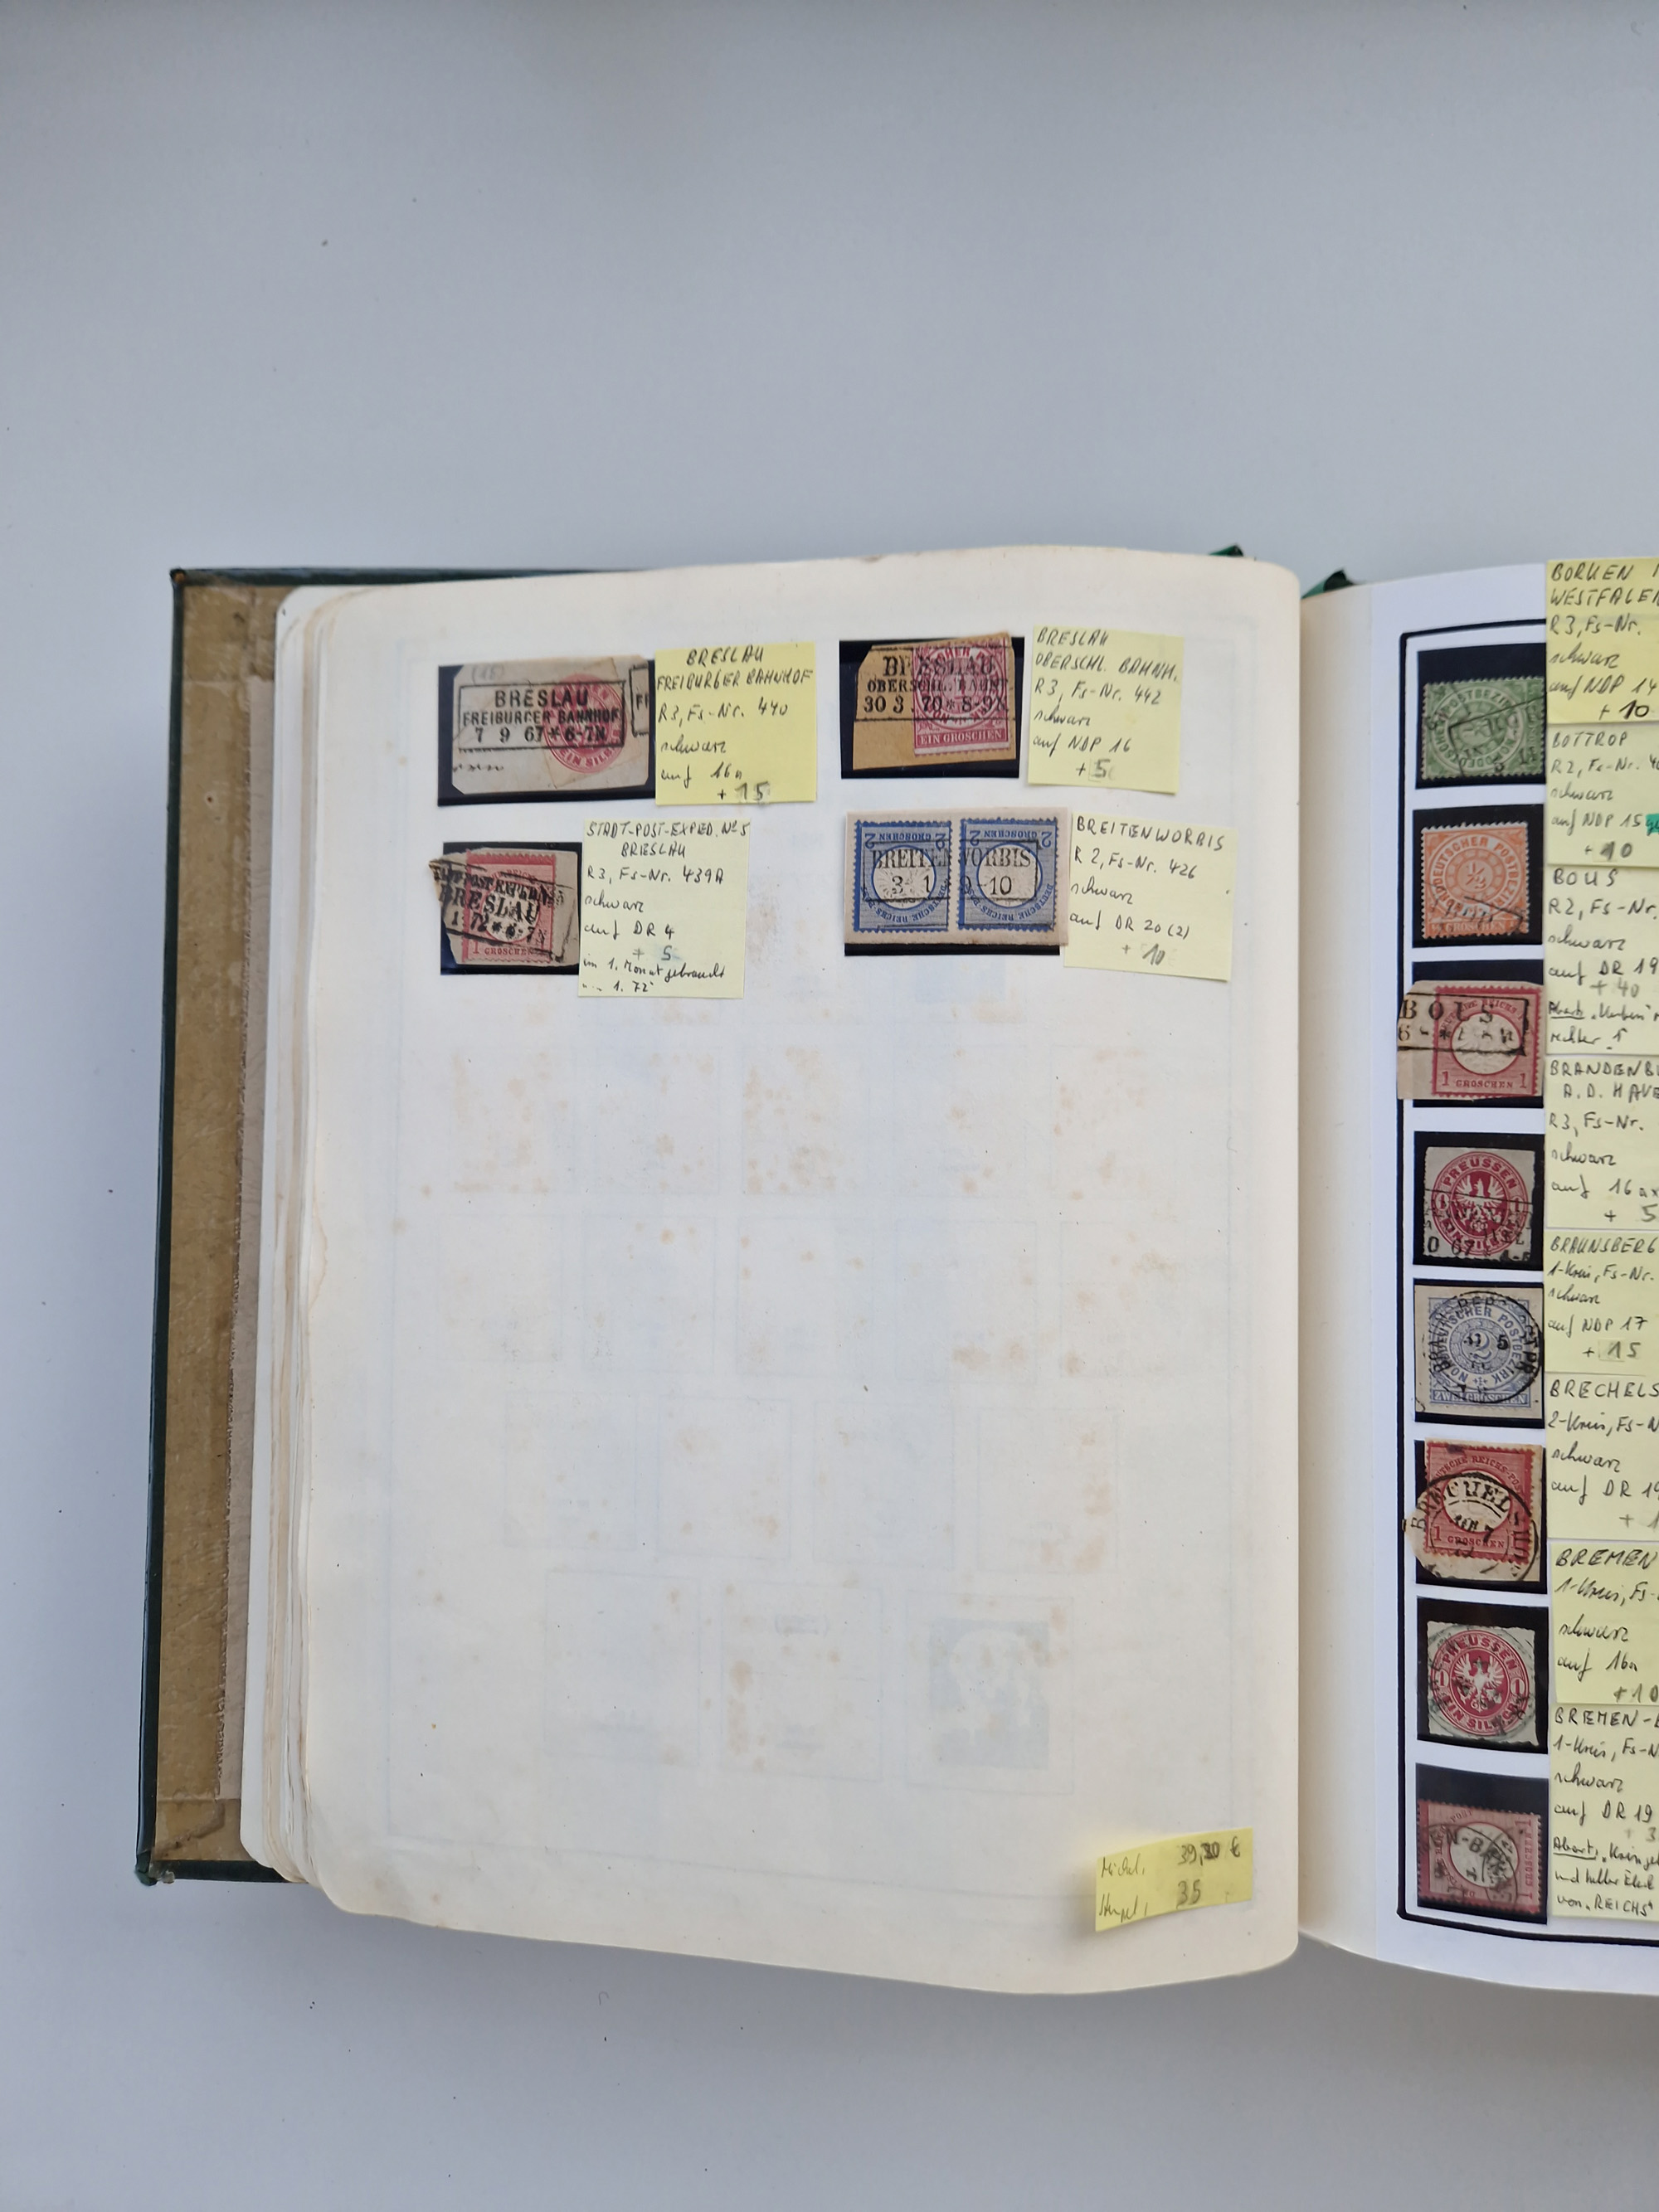 BRESLAU
FREIBURGER BAHNHOF
7 9 67 * 6-7N
BRESLAU
FREIBURGER BAHNHOF
R3, Fs-Nr. 440
schwarz
auf 16a
+ 15
BRESLAU
OBERSCHL. BAHNH
30 3 70 * 8-9N
EIN GROSCHEN
BRESLAU
OBERSCHL. BAHNH.
R3, Fs-Nr. 442
schwarz
auf NDP 16
+ 5
BRESLAU
1 72 * 6-7
1 GROSCHEN
STADT-POST-EXPED. No 5
BRESLAU
R3, Fs-Nr. 439A
schwarz
auf DR 4
+ 5
im 1. Monat gebraucht
1. 72
2 GROSCHEN 2
2 GROSCHEN 2
BREITENWORBIS
3 1 10
DEUTSCHE REICHS-POST
DEUTSCHE REICHS-POST
BREITENWORBIS
R 2, Fs-Nr. 426
schwarz
auf DR 20 (2)
+ 10
Michel, 39,30 €
Stempel, 35
BORKEN
WESTFALEN
R3, Fs-Nr.
schwarz
auf NDP 14
+ 10
BOTTROP
R2, Fs-Nr.
schwarz
auf NDP 15
+ 10
NORDDEUTSCHER POSTBEZIRK
1/2
BOUS
1 GROSCHEN 1
BOUS
R2, Fs-Nr.
schwarz
auf DR 19
+ 40
Abart,
rechter
PREUSSEN
BRANDENBU
A.D. HAVE
R3, Fs-Nr.
schwarz
auf 16 ax
+ 5
NORDDEUTSCHER POSTBEZIRK
ZWEI GROSCHEN
BRAUNSBERG
1-Kreis, Fs-Nr.
schwarz
auf NDP 17
+ 15
DEUTSCHE REICHS-PO
1 GROSCHEN
BRECHELS
2-Kreis, Fs-N
schwarz
auf DR 19
+ 1
PREUSSEN
1 EIN SILB 1
BREMEN
1-Kreis, Fs-
schwarz
auf 16a
+ 10
1 GROSCHEN 1
BREMEN-
1-Kreis, Fs-N
schwarz
auf DR 19
+ 3
Abart,
und heller Fleck
von „REICHS"